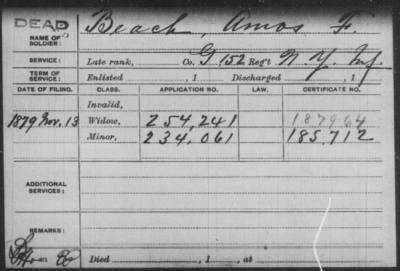 DEAD
NAME OF SOLDIER: Beach, Amos F.
SERVICE: Late rank, Co. G 152 Reg't N. Y. Inf.
TERM OF SERVICE: Enlisted , 1 Discharged , 1
DATE OF FILING. CLASS. APPLICATION NO. LAW. CERTIFICATE NO.
Invalid,
1879 Nov. 13 Widow, 254,241 187964
Minor, 234,061 185,712
ADDITIONAL SERVICES:
REMARKS:
Died , 1 , at